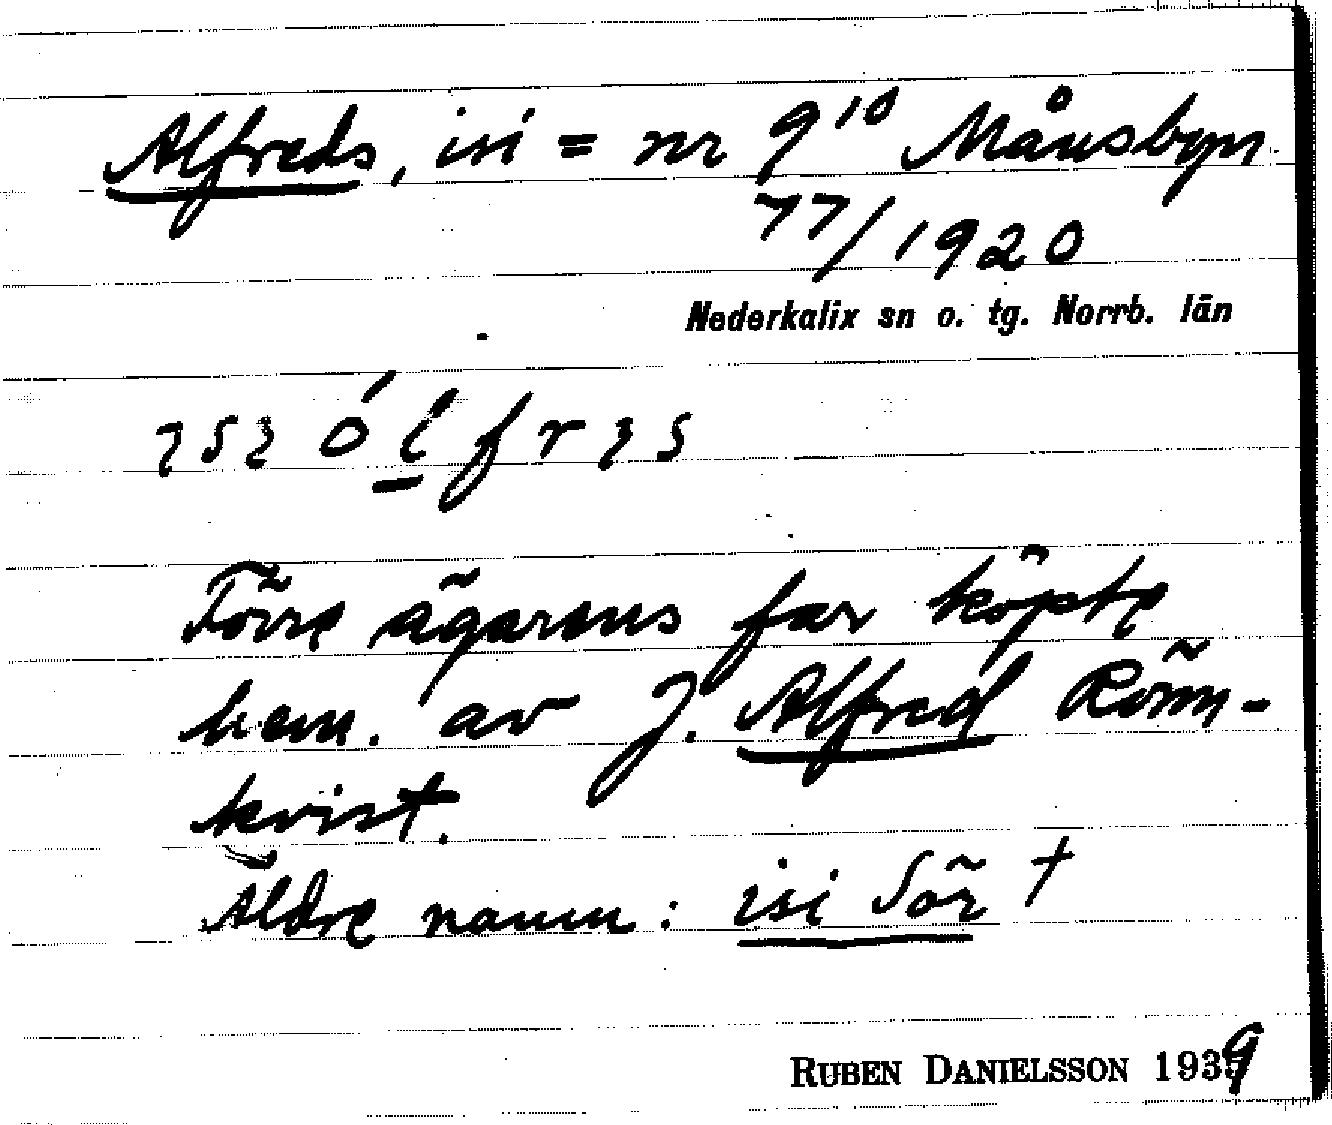 Alfreds, isi = nr 9¹⁰ Månsbyn
77/1920
Nederkalix sn o. tg. Norrb. län
Förre ägarens far köpte
hem. av J. Alfred Rönn-
kvist.
Äldre namn: isi Sör †
RUBEN DANIELSSON 1939